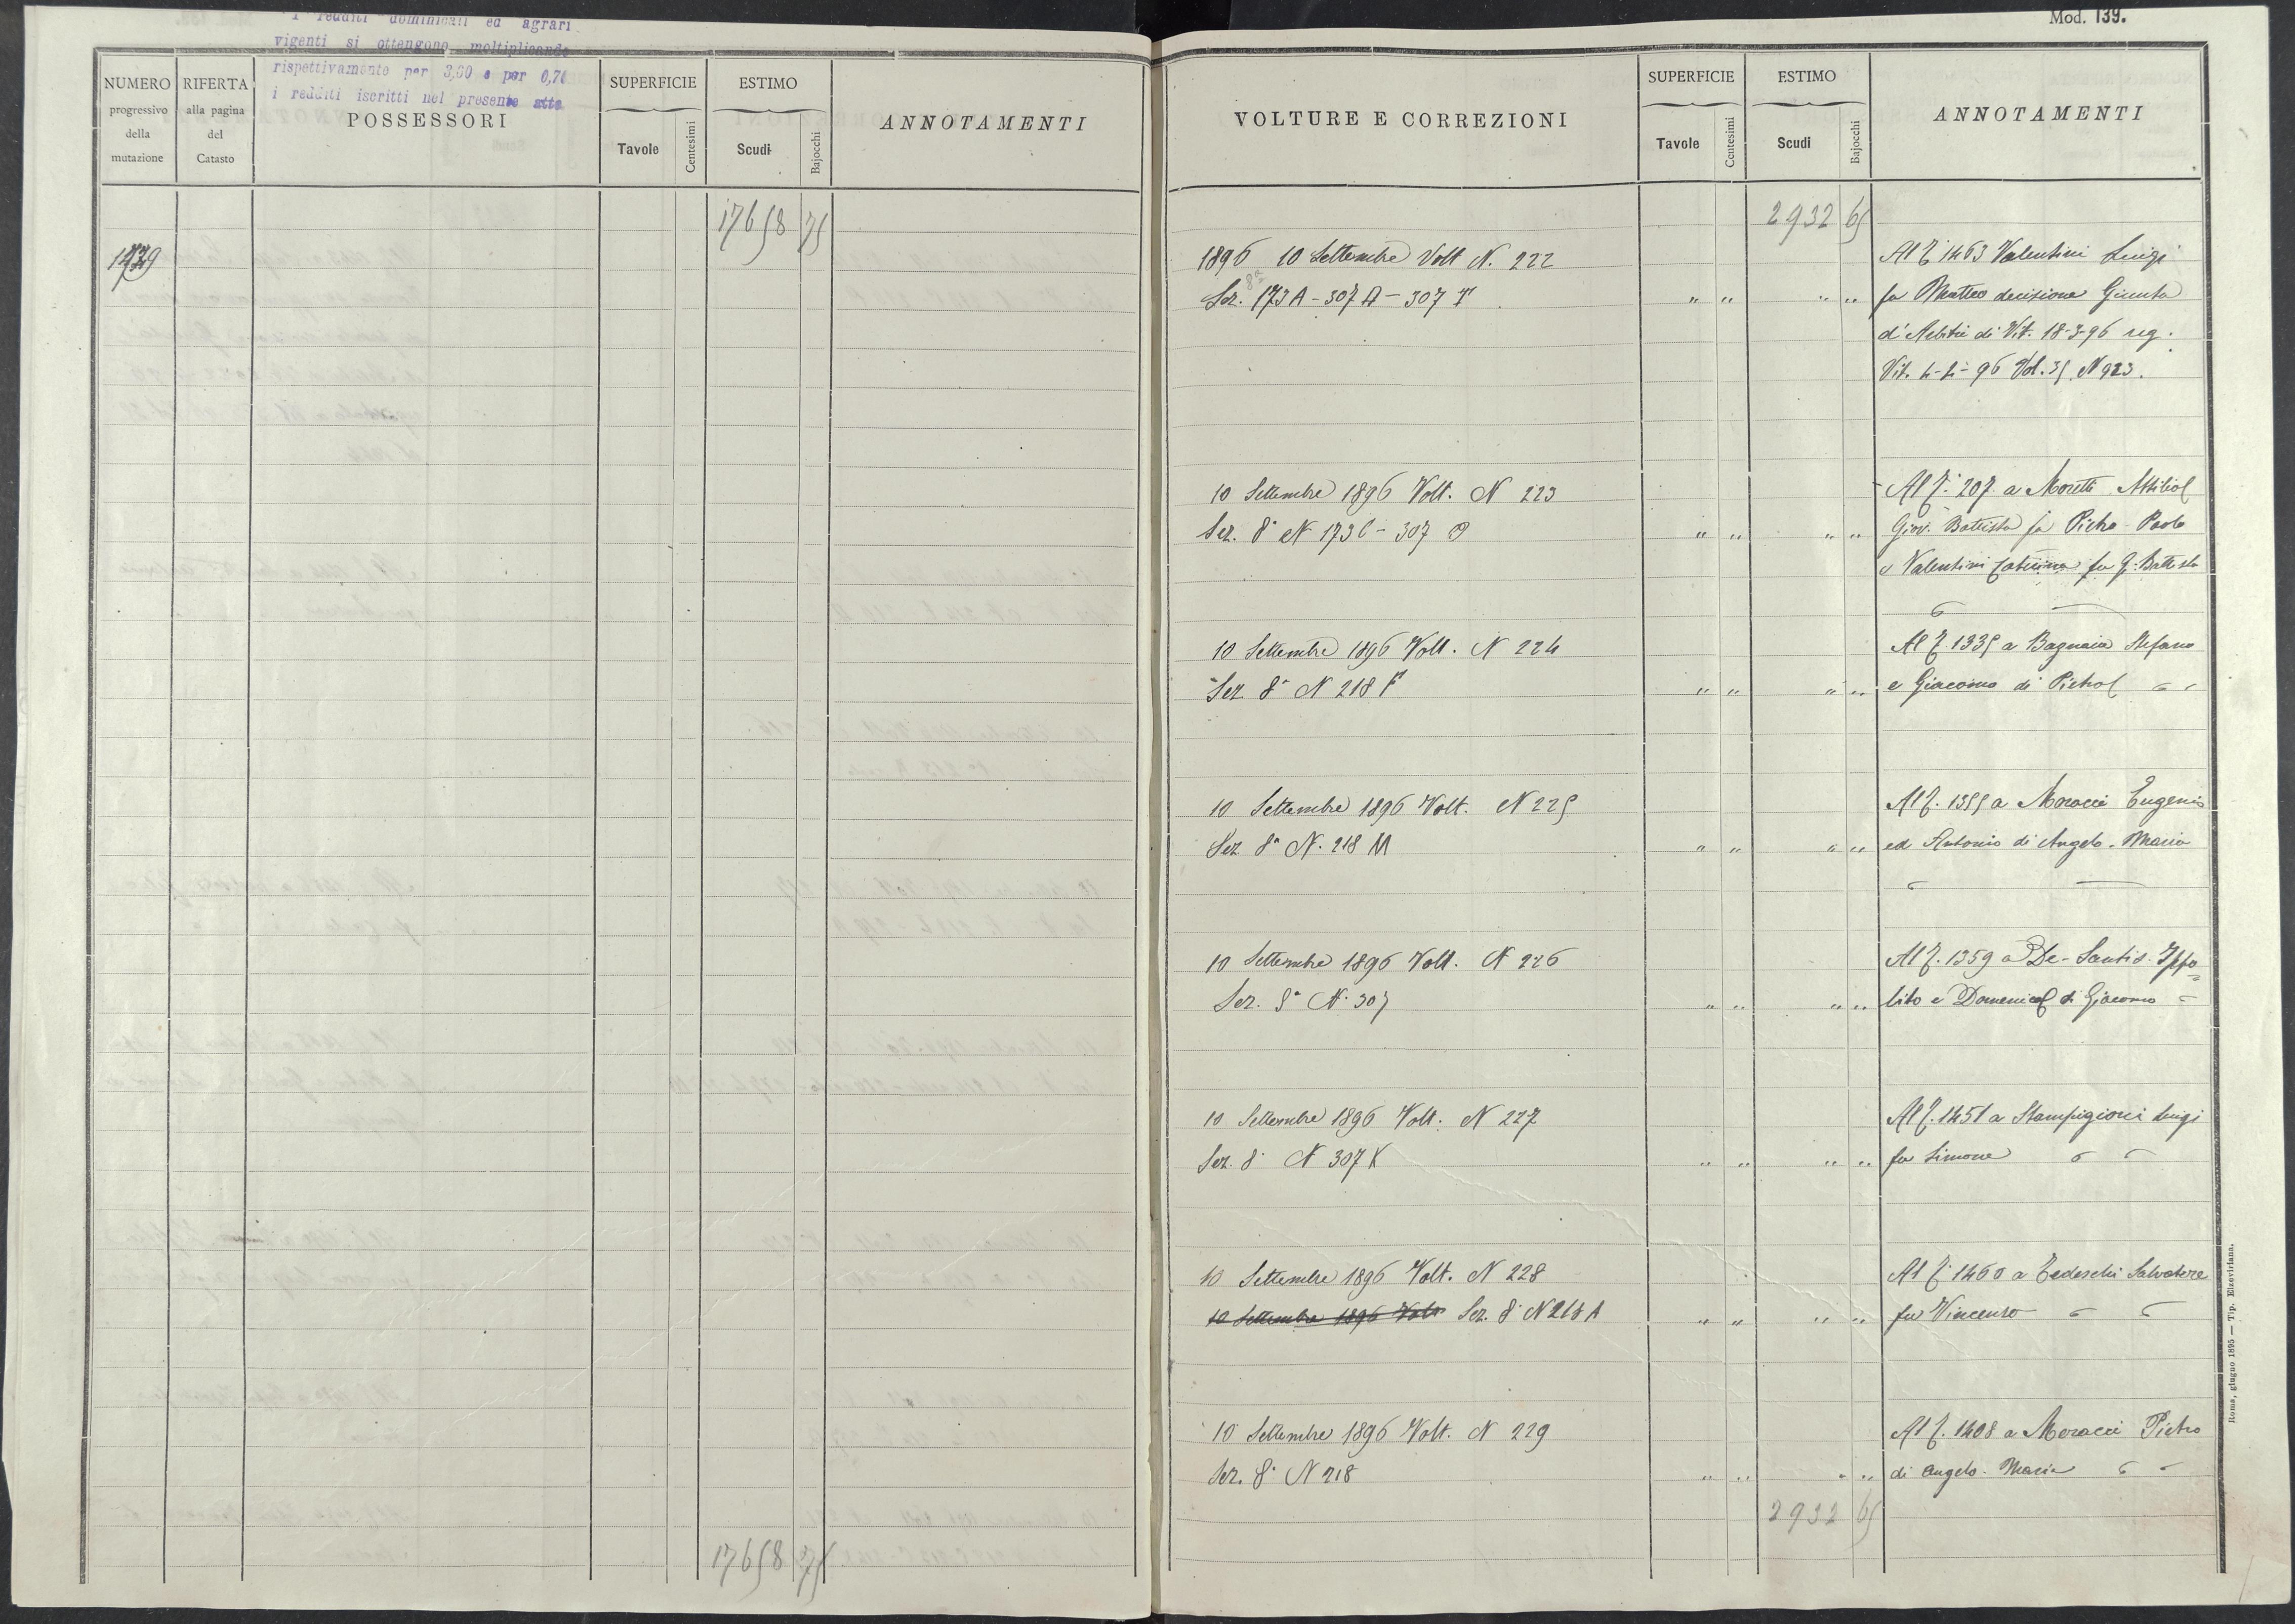 I redditi dominicali ed agrari
vigenti si ottengono moltiplicando
rispettivamente per 3,00 e per 0,70
i redditi iscritti nel presente atto
NUMERO
progressivo
della
mutazione
RIFERTA
alla pagina
del
Catasto
POSSESSORI
SUPERFICIE
Tavole
Centesimi
ESTIMO
Scudi
Bajocchi
ANNOTAMENTI
17658 75
17658 75
Mod. 139.
VOLTURE E CORREZIONI
SUPERFICIE
Tavole
Centesimi
ESTIMO
Scudi
Bajocchi
ANNOTAMENTI
2932 65
1896 10 Settembre Volt N. 222
Al f. 1463 Valentini Luigi
Sez. 8a 173 A - 307 A - 307 T " " " "
fu Matteo decisione Giunta
d'Arbitri di Vit. 18-3-96 reg.
Vit. 4-4-96 Vol. 35 N 923.
10 Settembre 1896 Volt. N 223
Al f. 207 a Moretti
Sez. 8a N 173 C - 307 O " " " "
Giov. Battista fu Pietro-Paolo
e Valentini Caterina fu G. Battista
10 Settembre 1896 Volt. N 224
Al f. 1335 a Bagnaia Stefano
Sez 8a N 218 F " " " "
e Giacomo di Pietro
10 Settembre 1896 Volt. N 225
Al f. 1355 a Moracci Eugenio
Sez 8a N. 218 M " " " "
ed Antonio di Angelo-Maria
10 Settembre 1896 Volt. N 226
Al f. 1359 a De-Santis Ippo=
Sez. 8a N. 307 " " " "
lito e Domenico di Giacomo
10 Settembre 1896 Volt. N 227
Al f. 1451 a Stampigioni Luigi
Sez. 8a N 307 K " " " "
fu Simone
10 Settembre 1896 Volt. N 228
Al f. 1460 a Tedeschi Salvatore
10 Settembre 1896 Volt Sez. 8a N 214 A " " " "
fu Vincenzo
10 Settembre 1896 Volt. N 229
Al f. 1408 a Moracci Pietro
Sez. 8a N 218 " " " "
di Angelo-Maria
2932 65
Roma, giugno 1895 — Tip. Elzeviriana.